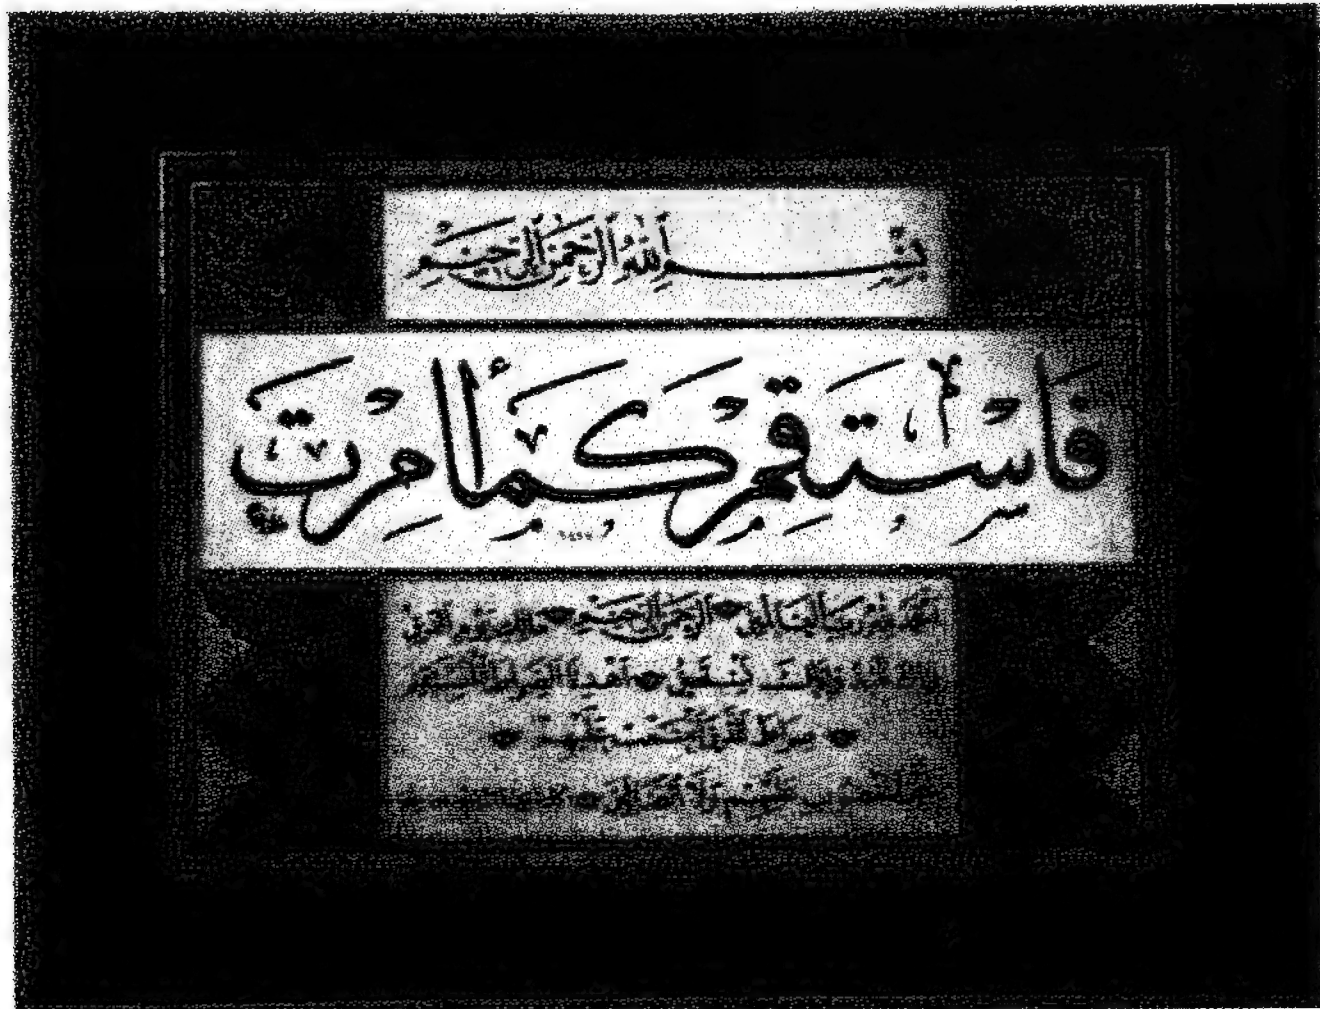 بِسْمِ اللَّهِ الرَّحْمَنِ الرَّحِيمِ
فَاسْتَقِمْ كَمَا أُمِرْتَ
الحمد لله رب العالمين الرحمن الرحيم مالك يوم الدين
إياك نعبد وإياك نستعين اهدنا الصراط المستقيم
صراط الذين أنعمت عليهم
غير المغضوب عليهم ولا الضالين